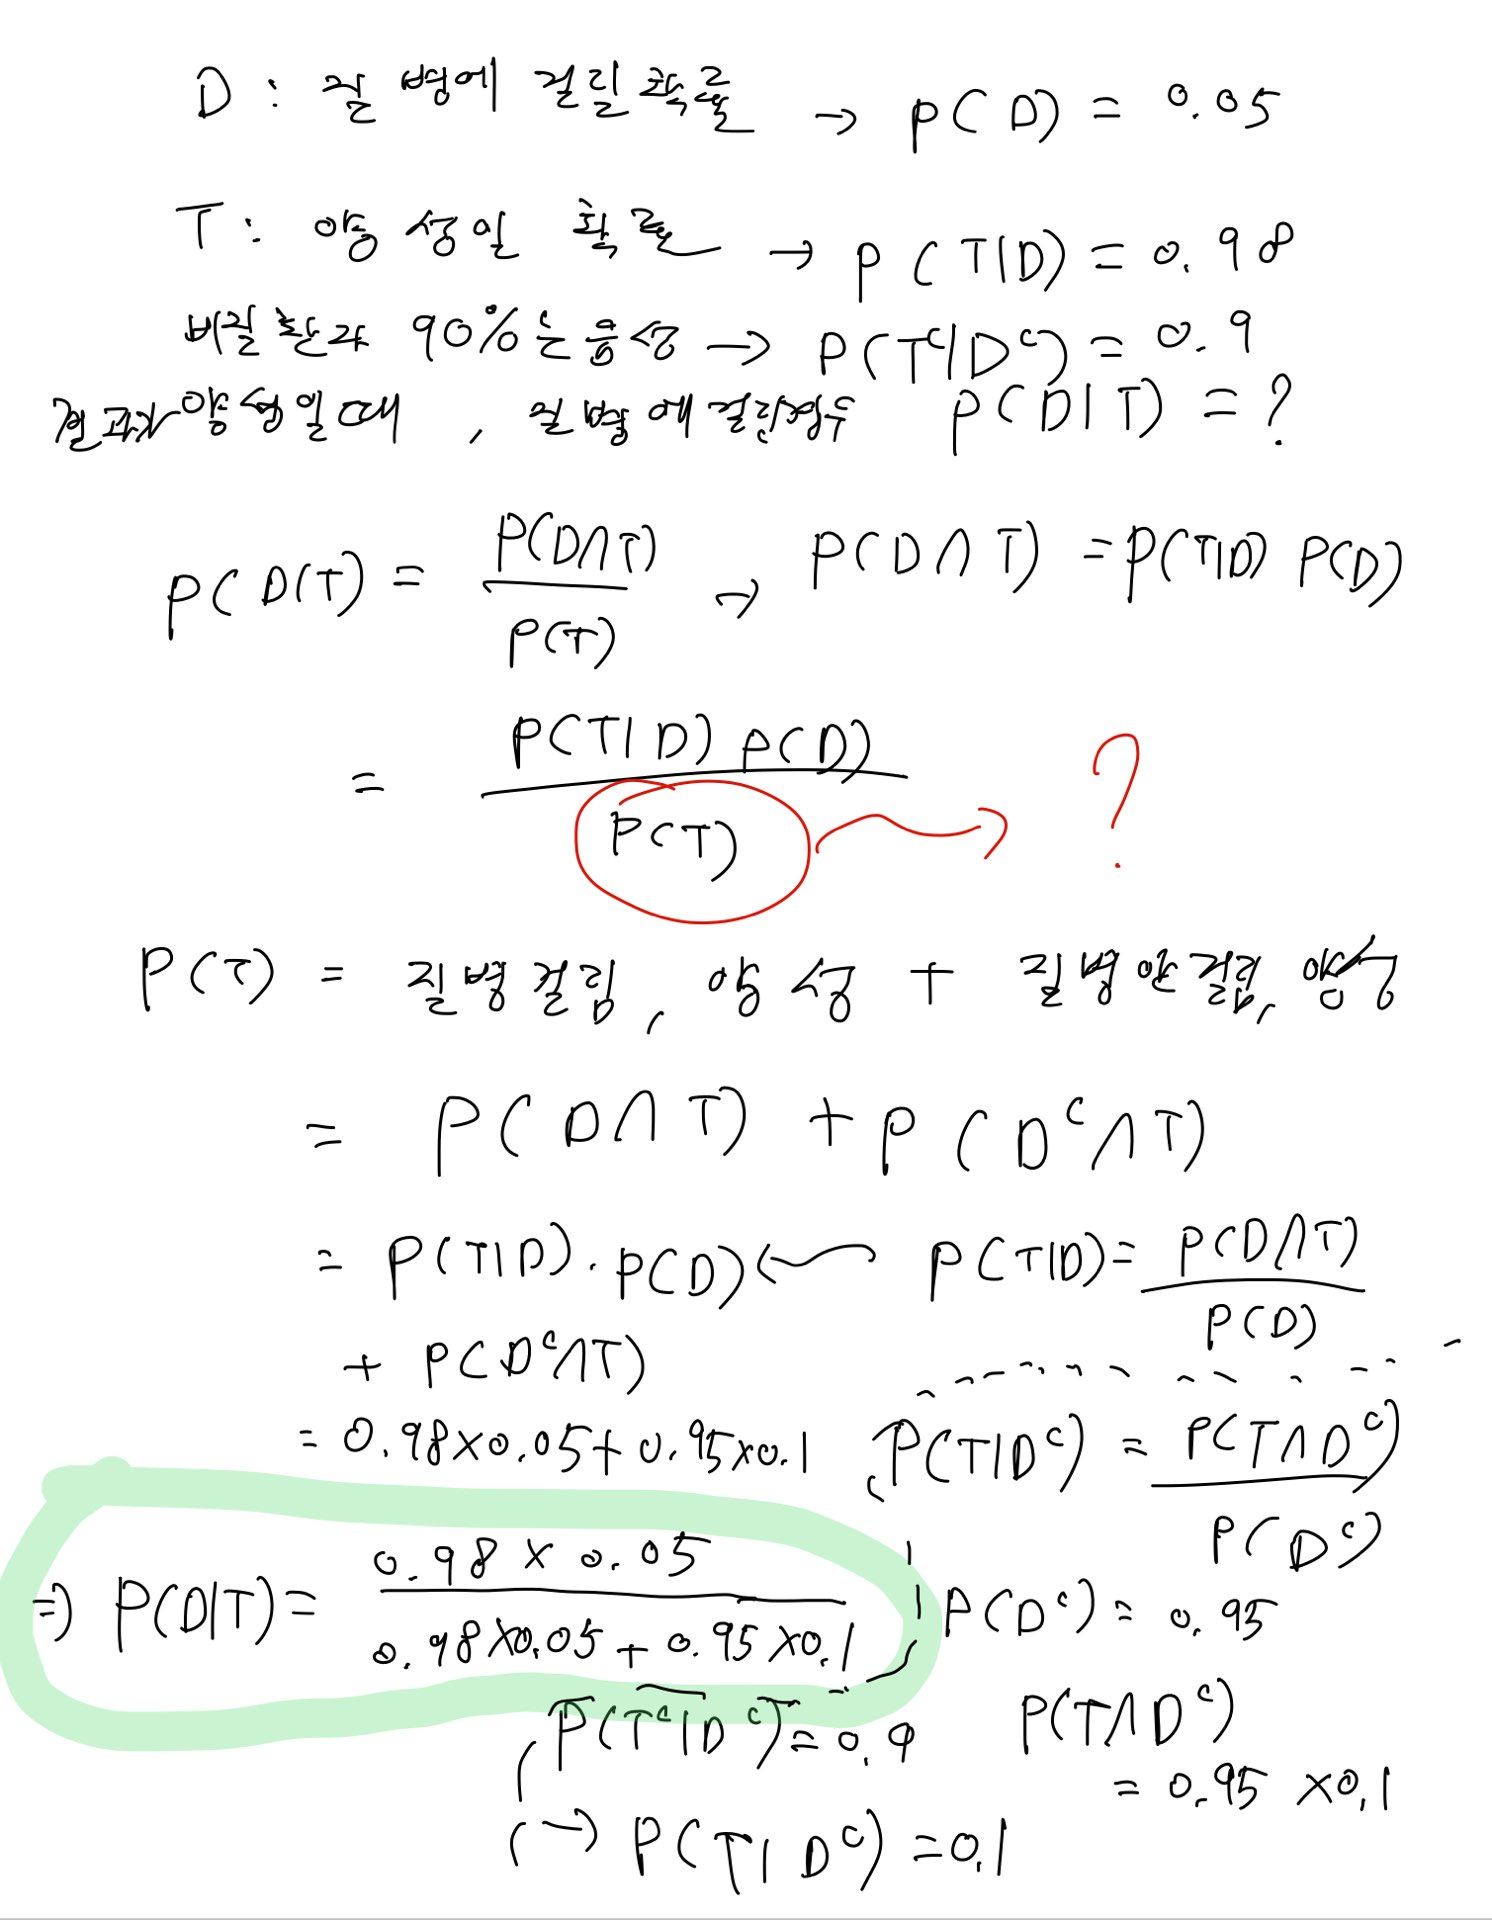 D : 질병에 걸릴 확률 → P(D) = 0.05
T : 양성일 확률 → P(T|D) = 0.98
비질환자 90%는 음성 → P(Tᶜ|Dᶜ) = 0.9
결과가 양성일때, 질병에 걸린경우 P(D|T) = ?
P(D|T) = P(D∩T) / P(T) → P(D∩T) = P(T|D) P(D)
= P(T|D) P(D) / P(T) → ?
P(T) = 질병걸림, 양성 + 질병안걸림, 양성
= P(D∩T) + P(Dᶜ∩T)
= P(T|D)·P(D) ← P(T|D) = P(D∩T) / P(D)
+ P(Dᶜ∩T)
= 0.98×0.05+0.95×0.1
P(T|Dᶜ) = P(T∩Dᶜ) / P(Dᶜ)
⇒ P(D|T) = 0.98×0.05 / 0.98×0.05+0.95×0.1
P(Dᶜ) = 0.95
P(Tᶜ|Dᶜ) = 0.9
P(T∩Dᶜ)
= 0.95×0.1
→ P(T|Dᶜ) = 0.1